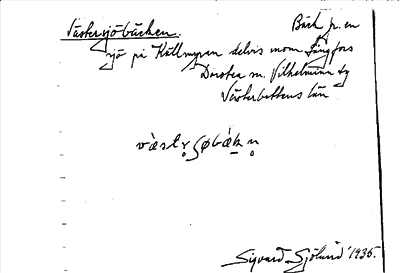 Västersjöbäcken. Bäck fr. en
sjö på Källmyran delvis inom Långfors
Dorotea m. Vilhelmina tg
Västerbottens län
væ̀st r̥ ʃøbæ̀k n̥
Sigvard Sjölund 1935.